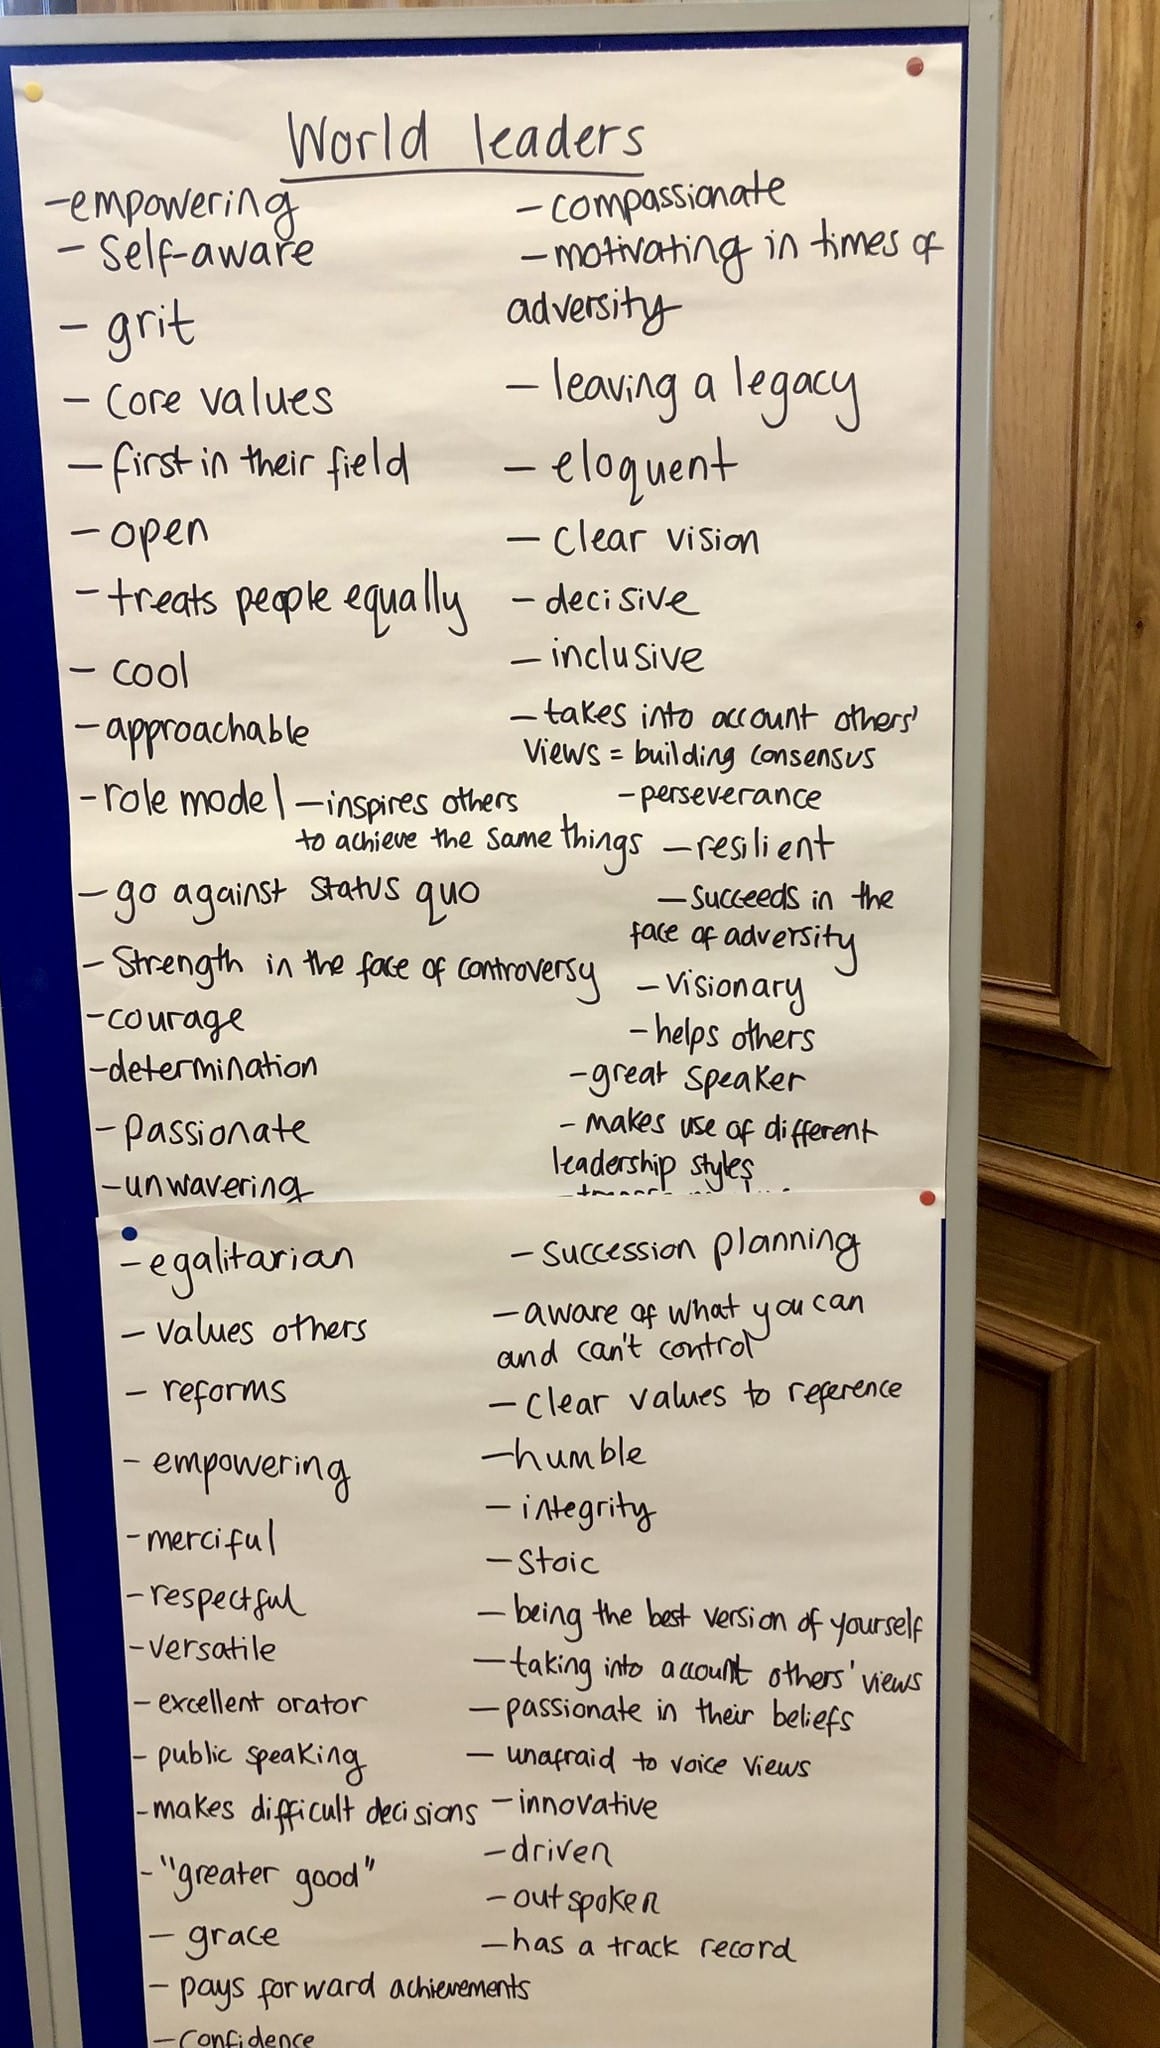 World leaders
-empowering
- Self-aware
- grit
- Core values
- first in their field
- open
- treats people equally
- cool
- approachable
- role model - inspires others
to achieve the same things
- go against status quo
- Strength in the face of controversy
- courage
- determination
- Passionate
- unwavering
- compassionate
- motivating in times of
adversity
- leaving a legacy
- eloquent
- clear vision
- decisive
- inclusive
- takes into account others'
views = building consensus
- perseverance
- resilient
- succeeds in the
face of adversity
- visionary
- helps others
- great speaker
- makes use of different
leadership styles
- egalitarian
- values others
- reforms
- empowering
- merciful
- respectful
- versatile
- excellent orator
- public speaking
- makes difficult decisions
- "greater good"
- grace
- pays forward achievements
- confidence
- succession planning
- aware of what you can
and can't control
- clear values to reference
- humble
- integrity
- Stoic
- being the best version of yourself
- taking into account others' views
- passionate in their beliefs
- unafraid to voice views
- innovative
- driven
- outspoken
- has a track record